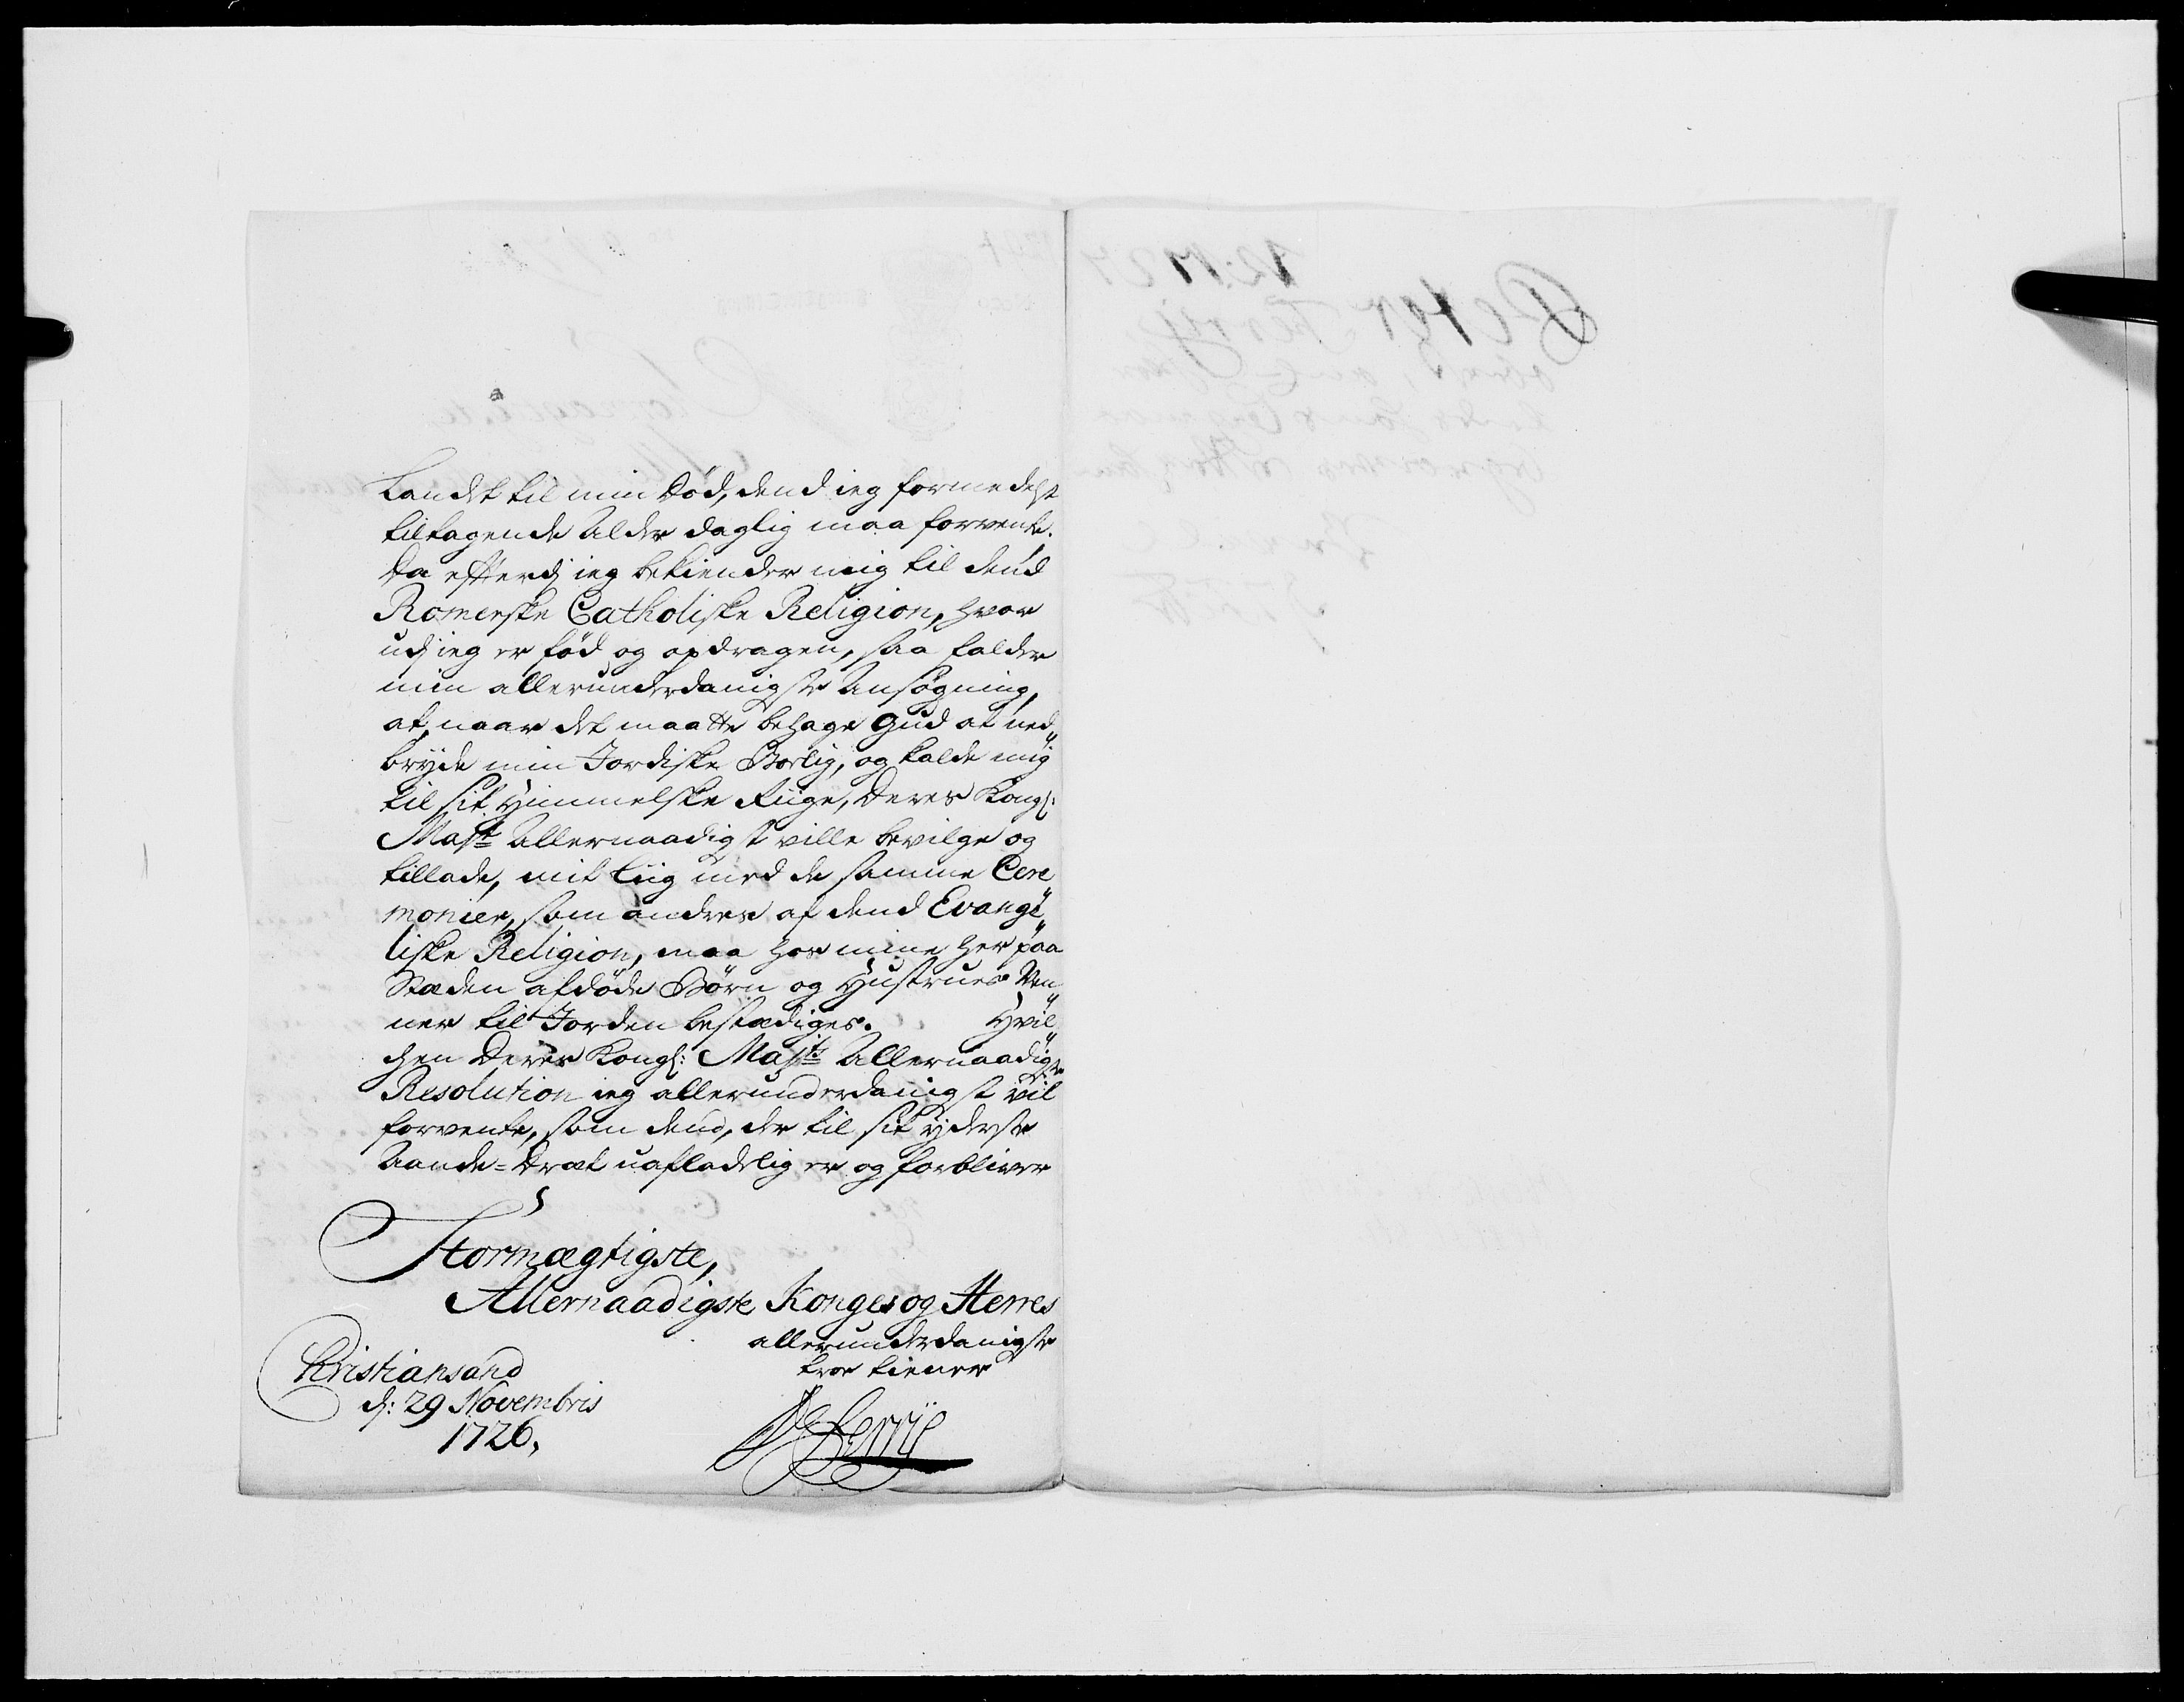 Landet til min Død, dend ieg formedelst
tiltagende Alder daglig maa forvente.
Da efterdj ieg bekiender mig til dend
Romerske Catholiske Religion, hvor
udj ieg er fød og opdragen, saa falder
min allerunderdanigste Ansøgning,
at, naar det maatte behage Gud at ned„
bryde min Jordiske Boelig, og kalde mig
til sit Himmelske Riige, Deres Kongl:
Majt Allernaadigst ville bevilge og
tillade, mit Liig med de samme Cere„
monier, som andres af dend Evange„
liske Religion, maa hos mine her paa
Stæden afdøde Børn og Hustrues
ner til Jorden bestædiges. Hvil„
chen Deres Kongl: Majts Allernaadigste
Resolution ieg allerunderdanigst vil
forvente, som dend, der til sit yderste
Aande=Dræt uafladelig er og forbliver
Stormægtigste,
Allernaadigste Konges og Herres
allerunderdanigste
troe tiener
Christiansand
d: 29 Novembris
1726.
Ferrÿ
12.1727
Peter Ferrij